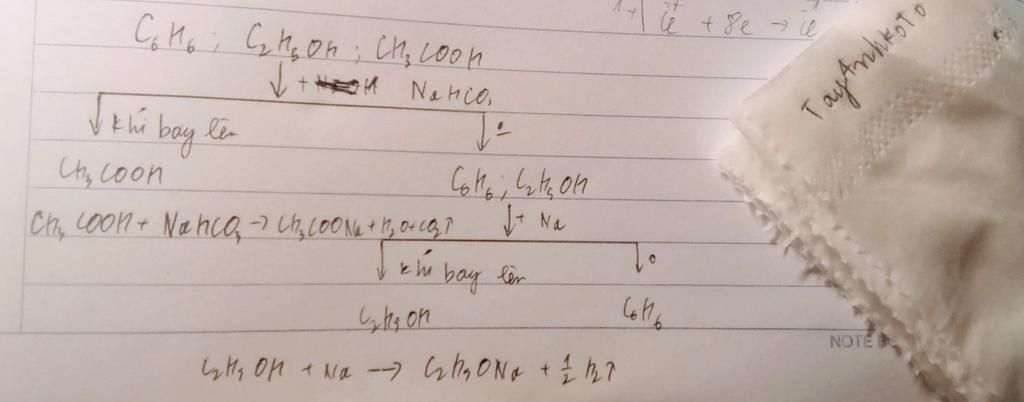 + 8e →
C₆H₆ ; C₂H₅OH ; CH₃COOH
↓ + NaHCO₃
↓ khí bay lên ↓ 0
CH₃COOH C₆H₆ ; C₂H₅OH
CH₃COOH + NaHCO₃ → CH₃COONa + H₂O + CO₂↑ ↓ + Na
↓ khí bay lên ↓ 0
C₂H₅OH C₆H₆
C₂H₅OH + Na → C₂H₅ONa + ½ H₂↑
TayAnhKoTo
NOTE